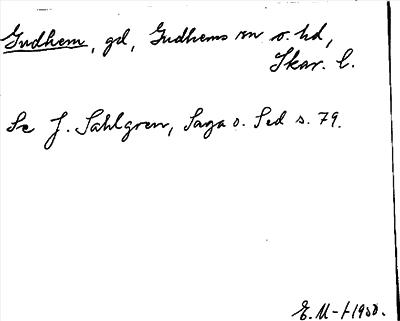 Gudhem, gd, Gudhems sn o. hd,
Skar. l.
Se J. Sahlgren, Saga o. Sed s. 79.
E. M-t 1950.